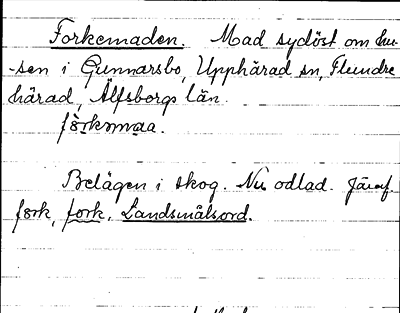 Forkemaden. Mad sydöst om hu-
-sen i Gunnarsbo, Upphärad sn, Flundre
härad, Älfsborgs län.
fòrkəmaa.
Belägen i skog. Nu odlad. Jämf.
fork, fork, Landsmålsord.